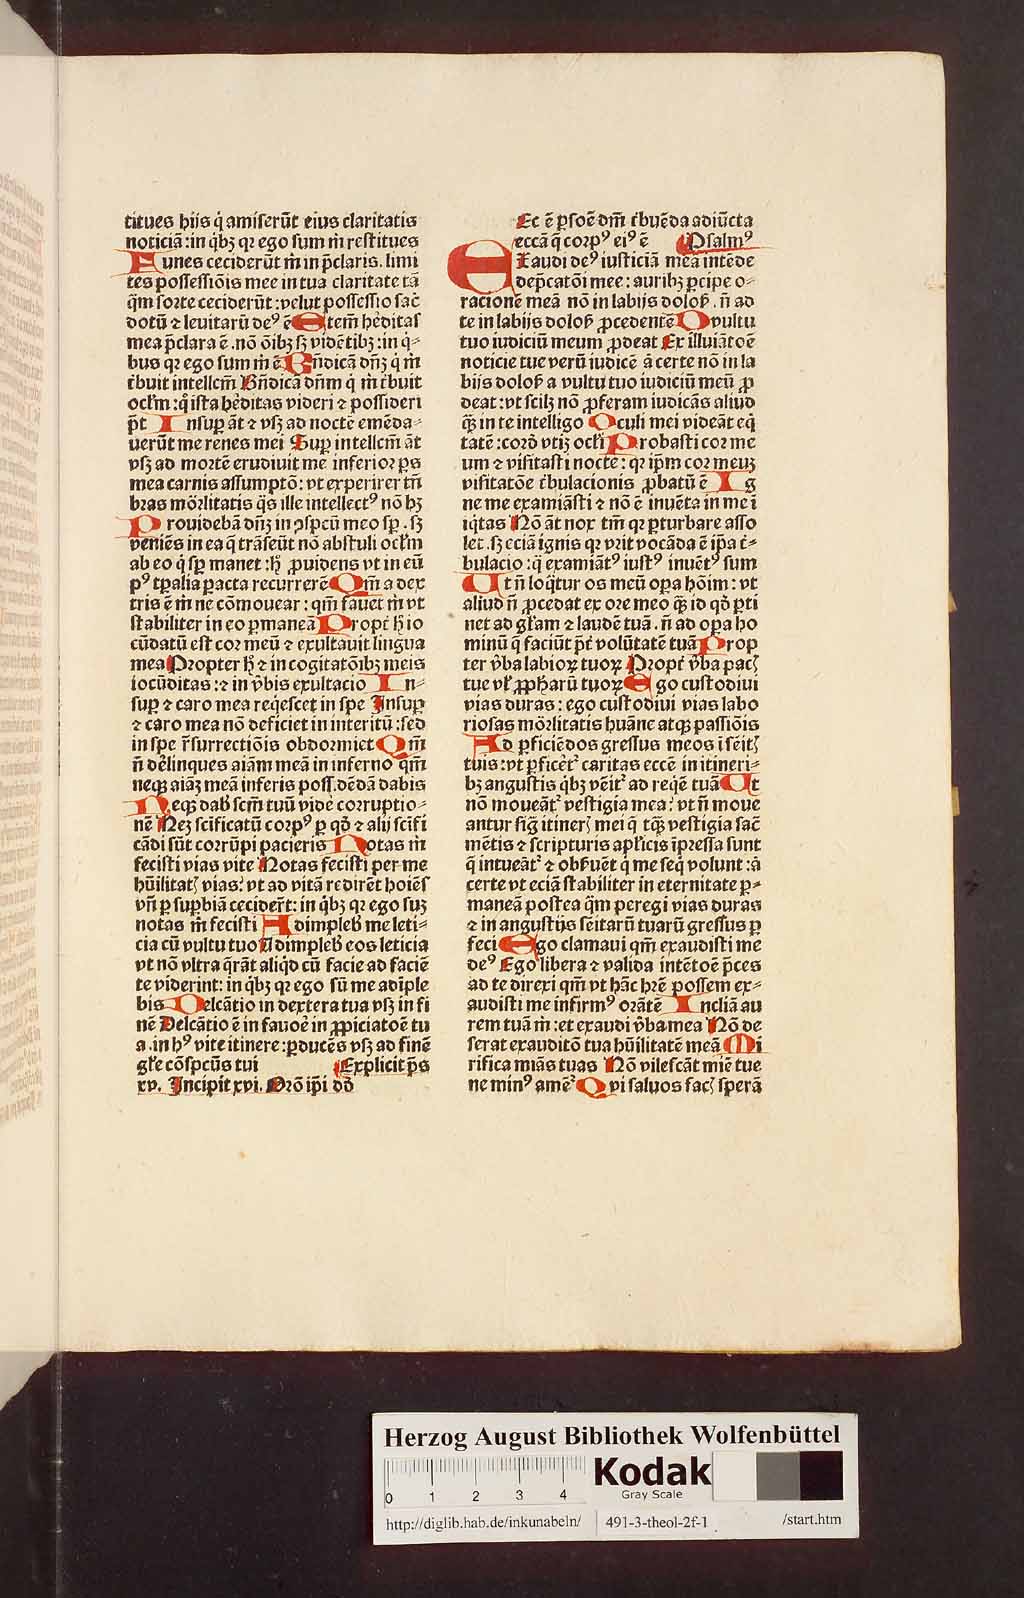 titues hijs q̇ amiserūt eius claritatis
noticiā : in q̇bꝫ qꝛ ego sum m̄ restitues
Funes ceciderūt m̄ in p̄claris. limi
tes possessiōis mee in tua claritate tā
q̄m sorte ceciderūt : velut possessio sac̄
dotū ⁊ leuitarū deꝰ ē Etem̄ hēditas
mea p̄clara ē .nō ōibꝫ sꝫ vidētibꝫ : in q̇-
bus qꝛ ego sum m̄ ē Bn̄dicā dn̄ꝫ q̇ m̄
t̄buit intellcm̄ Bn̄dicā dn̄m q̇ m̄ t̄buit
ocl̄m : q̇ ista hēditas videri ⁊ possideri
p̄t Insup āt ⁊ vsꝫ ad noctē emēda-
uerūt me renes mei Sup intellcm̄ āt
vsꝫ ad mortē erudiuit me inferior ps̄
mea carnis assumptō : vt experirer tn̄
bras mōrlitatis q̄s ille intellectꝰ nō hꝫ
Prouidebā dn̄ꝫ in ꝯspcū meo sp̄ . sꝫ
veniēs in ea q̄ trāseūt nō abstuli ocl̄m
ab eo q̇ sp̄ manet : h̄ ꝓuidens vt in eū
pꝰ tp̄alia pacta recurrerē Qm̄ a dex
tris ē m̄ ne cōmouear : qm̄ fauet m̄ vt
stabiliter in eo ꝑmaneā Propt̄ h̄ io
cūdatū est cor meū ⁊ exultauit lingua
mea Propter h̄ ⁊ in cogitatōibꝫ meis
iocūditas : ⁊ in v̄bis exultacio In-
sup ⁊ caro mea reqescet in spe Insup
⁊ caro mea nō deficiet in interitū : sed
in spe r̄surrectiōis obdormiet Qm̄
n̄ dēlinques aiām meā in inferno qm̄
neqꝫ aiāꝫ meā inferis poss. dēdā dabis
Neqꝫ dab̄ scm̄ tuū vide corruptio-
nē Neꝫ scificatū corpꝰ p qd̄ ⁊ alij scīfi
cādi sūt corrūpi pacieris Notas m̄
fecisti vias vite Notas fecisti per me
hūilitat̄ vias : vt ad vitā redirēt hoiēs
vn̄ ꝑ supbiā cecider̄t : in q̇bꝫ qꝛ ego suꝫ
notas m̄ fecisti Adimpleb̄ me leti-
cia cū vultu tuo Adimpleb̄ eos leticia
vt nō vltra q̄rāt aliqd̄ cū facie ad faciē
te viderint : in q̇bꝫ qꝛ ego sū me adiple
bis Delcātio in dextera tua vsꝫ in fi
nē Delcātio ē in fauoē in ꝓpiciatoē tu
a .in hꝰ vite itinere : ꝑducēs vsꝫ ad finē
gl̄e cōspcūs tui Explicit ps̄
xv. Incipit xvi. Orō ip̄i dd̄
Ec ē ꝑsoē dm̄ t̄buēda adiūcta
eccā q̄ corpꝰ eiꝰ ē Psalmꝰ
Exaudi deꝰ iusticiā mea intēde
dep̄catōi mee : auribꝫ ꝑcipe o-
racionē meā nō in labijs dolos̄ . n̄ ad
te in labijs dolos̄ ꝓcedentē O vultu
tuo iudiciū meum ꝓdeat Ex illuiātoē
noticie tue verū iudicē ā certe nō in la
bijs dolos̄ a vultu tuo iudiciū meū ꝓ
deat : vt scilꝫ nō ꝓferam iudicās aliud
qꝫ in te intelligo Oculi mei videāt eq̇
tatē : corō vtiꝫ ocl̄i Probasti cor me
um ⁊ visitasti nocte : qꝛ ip̄m cor meuꝫ
visitatōe t̄bulacionis ꝓbatū ē Ig
ne me examiāsti ⁊ nō ē inuēta in me i
iq̇tas Nō āt nox tm̄ qꝛ ꝑturbare asso
let .sꝫ eciā ignis qꝛ vrit vocāda ē ip̄a t̄-
bulacio : q̄ examiātꝰ iustꝰ inuētꝰ sum
Ut n̄ loq̄tur os meū oꝑa hōim : vt
aliud n̄ ꝓcedat ex ore meo qꝫ id qd̄ ꝑti
net ad gl̄am ⁊ laudē tuā . n̄ ad oꝑa ho
minū q̄ faciūt p̄t̄ volūtatē tuā Prop
ter v̄ba labioꝝ tuoꝝ Propt̄ v̄ba pac̄
tue vl̄ ꝓph̄arū tuoꝝ Ego custodiui
vias duras : ego custodiui vias labo
riosas mōrlitatis huāne atqꝫ passiōis
Ad ꝑficiēdos gressus meos ī sēit̄
tuis : vt ꝑficēt̄ caritas eccē in itineri-
bꝫ angustis q̇bꝫ vēit̄ ad reqē tuā Ut
nō moueāt̄ vestigia mea : vt n̄ moue
antur siḡ itiner̄ mei q̄ tqꝫ vestigia sac̄
mētis ⁊ scripturis apl̄icis īpressa sunt
q̄ intueāt̄ ⁊ obs̄uēt q̇ me seq̄ volunt : ā
certe vt eciā stabiliter in eternitate ꝑ-
maneā postea q̄m peregi vias duras
⁊ in angustijs sēitarū tuarū gressus ꝑ
feci Ego clamaui qm̄ exaudisti me
deꝰ Ego libera ⁊ valida intētoē p̄ces
ad te direxi qm̄ vt hāc hr̄e possem ex-
audisti me infirmꝰ orātē Incliā au
rem tuā m̄ : et exaudi v̄ba mea Nō de
serat exauditō tua hūilitatē meā Mi
rifica miās tuas Nō vilescāt miē tue
ne minꝰ amēt̄ Qui saluos fac̄ sperā
Herzog August Bibliothek Wolfenbüttel
0 1 2 3 4
Kodak
Gray Scale
http://diglib.hab.de/inkunabeln/ 491-3-theol-2f-1 /start.htm